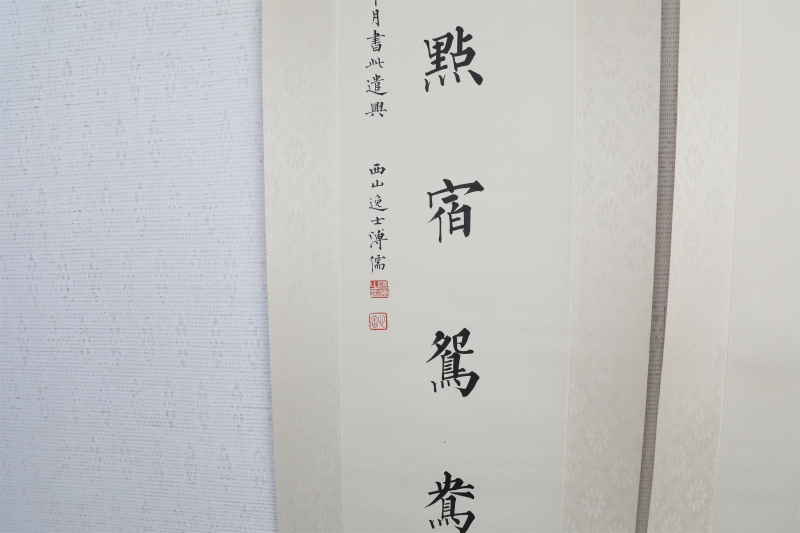 點宿鴛鴦
月書此遣興
西山逸士溥儒